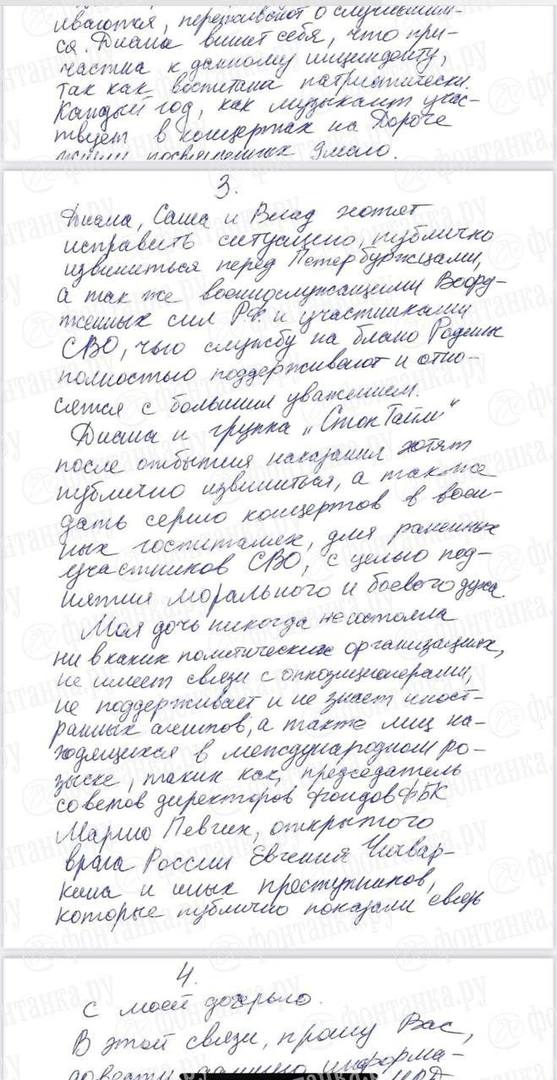 ся. Диана винит себя, что при-
частна к данному инциденту,
так как воспитана патриотически.
Каждый год, как музыкант участ-
вует в концертах на Дороге
жизни посвященных 9 мая.
3.
Диана, Саша и Влад хотят
исправить ситуацию, публично
извиниться перед Петербуржцами,
а так же военнослужащими Воору-
женных сил РФ и участниками
СВО, чью службу на благо Родины
полностью поддерживают и отно-
сятся с большим уважением.
Диана и группа „Стоп Тайм"
после отбытия наказания хотят
публично извиниться, а также
дать серию концертов в воен-
ных госпиталях, для раненных
участников СВО, с целью под-
нятия морального и боевого духа.
Моя дочь никогда не состояла
ни в каких политических организациях,
не имеет связи с оппозиционерами,
не поддерживает и не знает иност-
ранных агентов, а также лиц на-
ходящихся в международном ро-
зыске, таких как, председатель
советов директоров фондов ФБК
Марию Певчих, открытого
врага России Евгения Чичвар-
кина и иных преступников,
которые публично показали связь
4.
с моей дочерью.
В этой связи, прошу Вас,
фонтанка.ру